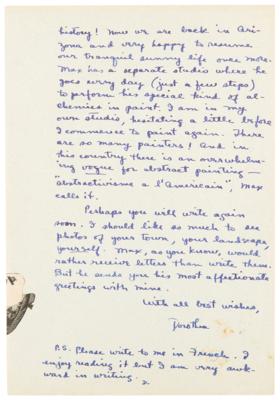 history! Now we are back in Ari-
zona and very happy to resume
our tranquil sunny life once more.
Max has a separate studio where he
goes every day (just a few steps)
to perform his special kind of al-
chemies in paint. I am in my
own studio, hesitating a little before
I commence to paint again. There
are so many painters! And in
this country there is an overwhelm-
ing vogue for abstract painting—
"abstractivisme a l'Americain", Max
calls it.
Perhaps you will write again
soon. I should like so much to see
photos of your town, your landscape,
yourself. Max, as you know, would
rather receive letters than write them.
But he sends you his most affectionate
greetings with mine.
With all best wishes,
Dorothea
P.S. Please write to me in French. I
enjoy reading it but I am very awk-
ward in writing.